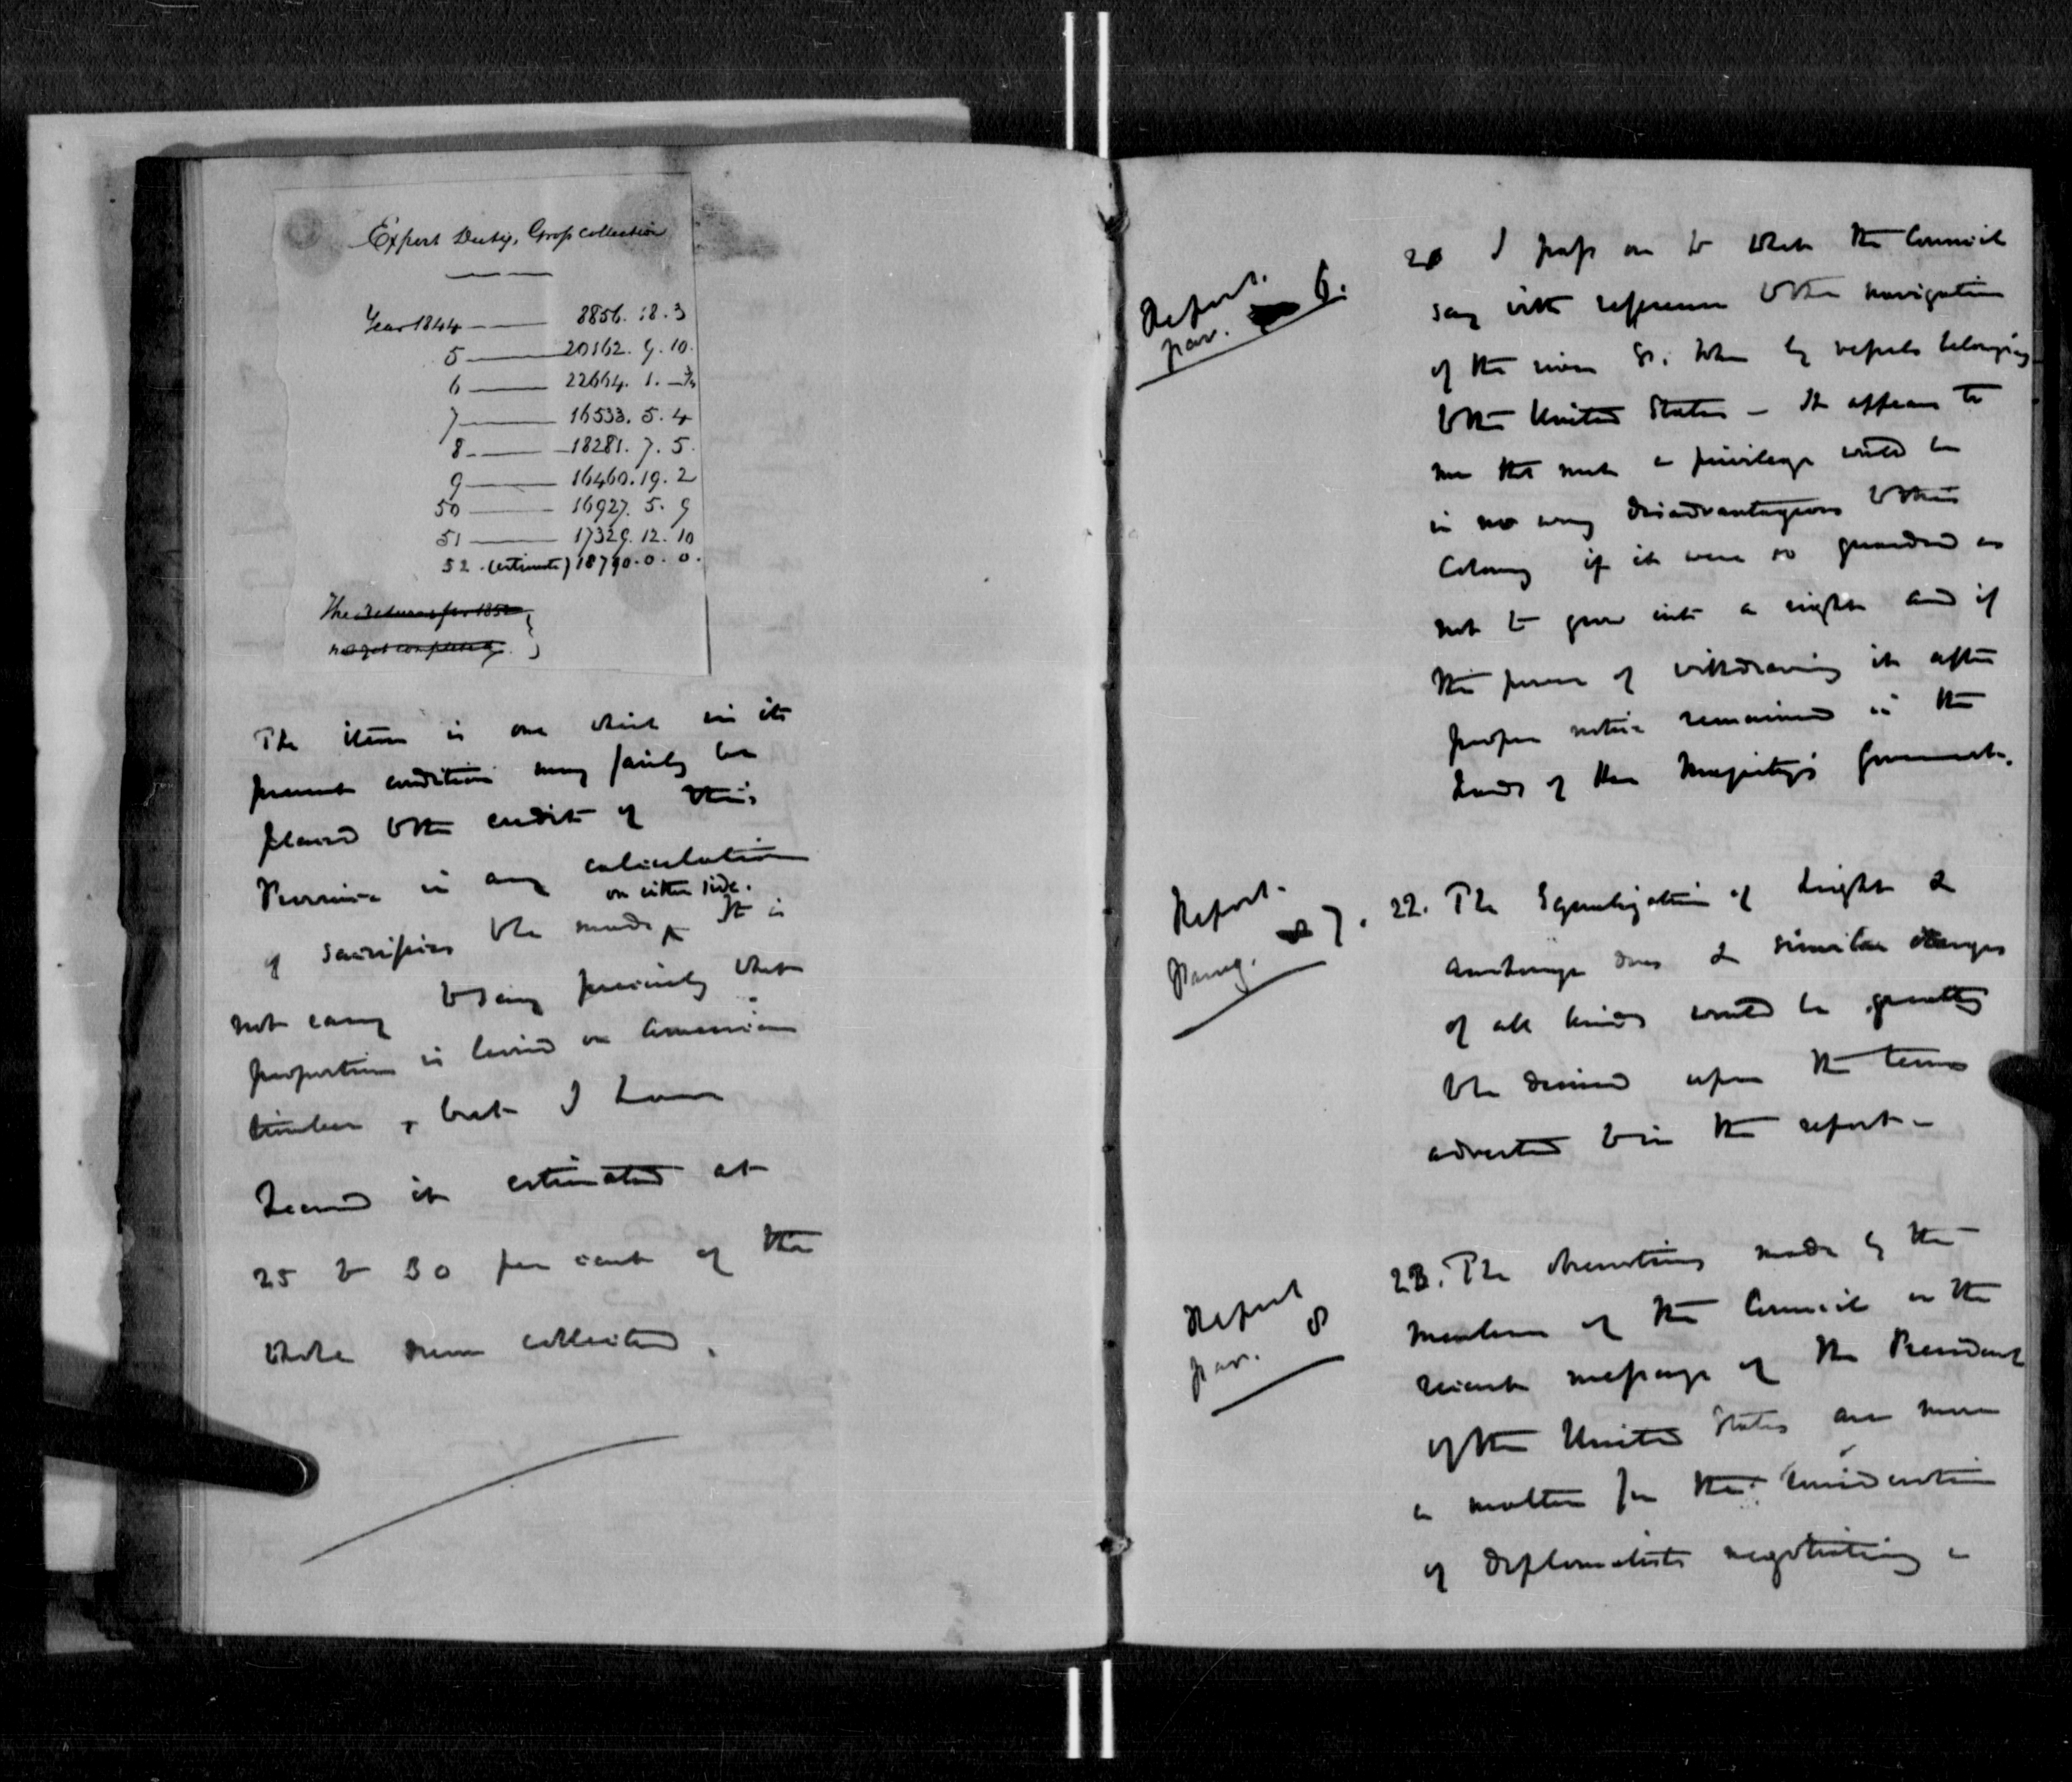 Export Duty, Gross collection
Year 1844 — 8856. 18. 3
5 — 20162. 9. 10.
6 — 22664. 1. —½
7 — 16533. 5. 4
8 — 18281. 7. 5.
9 — 16460. 19. 2
50 — 16927. 5. 9
51 — 17329. 12. 10
52. (estimate) 18790. 0. 0.
The returns for 1852
not yet completed.
The item is one which in its
present condition may fairly be
placed to the credit of this
Province in any calculation
of sacrifices to be made on either side. It is
not easy to say precisely what
proportion is levied on American
timber, but I have
heard it estimated at
25 to 30 per cent of the
whole sum collected.
Report.
par. 6.
2 I pass on to what the Council
say with reference to the navigation
of the river St. John by vessels belonging
to the United States — It appears to
me that such a privilege would be
in no way disadvantageous to this
Colony if it were so guarded as
not to grow into a right and if
the power of withdrawing it after
proper notice remained in the
hands of Her Majesty's Government.
Report.
Parag. 7.
22. The Equalization of Light &
anchorage dues & similar charges
of all kinds would be greatly
to be desired upon the terms
adverted to in the report —
Report
par. 8
23. The observations made by the
members of the Council on the
recent message of the President
of the United States are more
a matter for the consideration
of diplomatists negotiating a